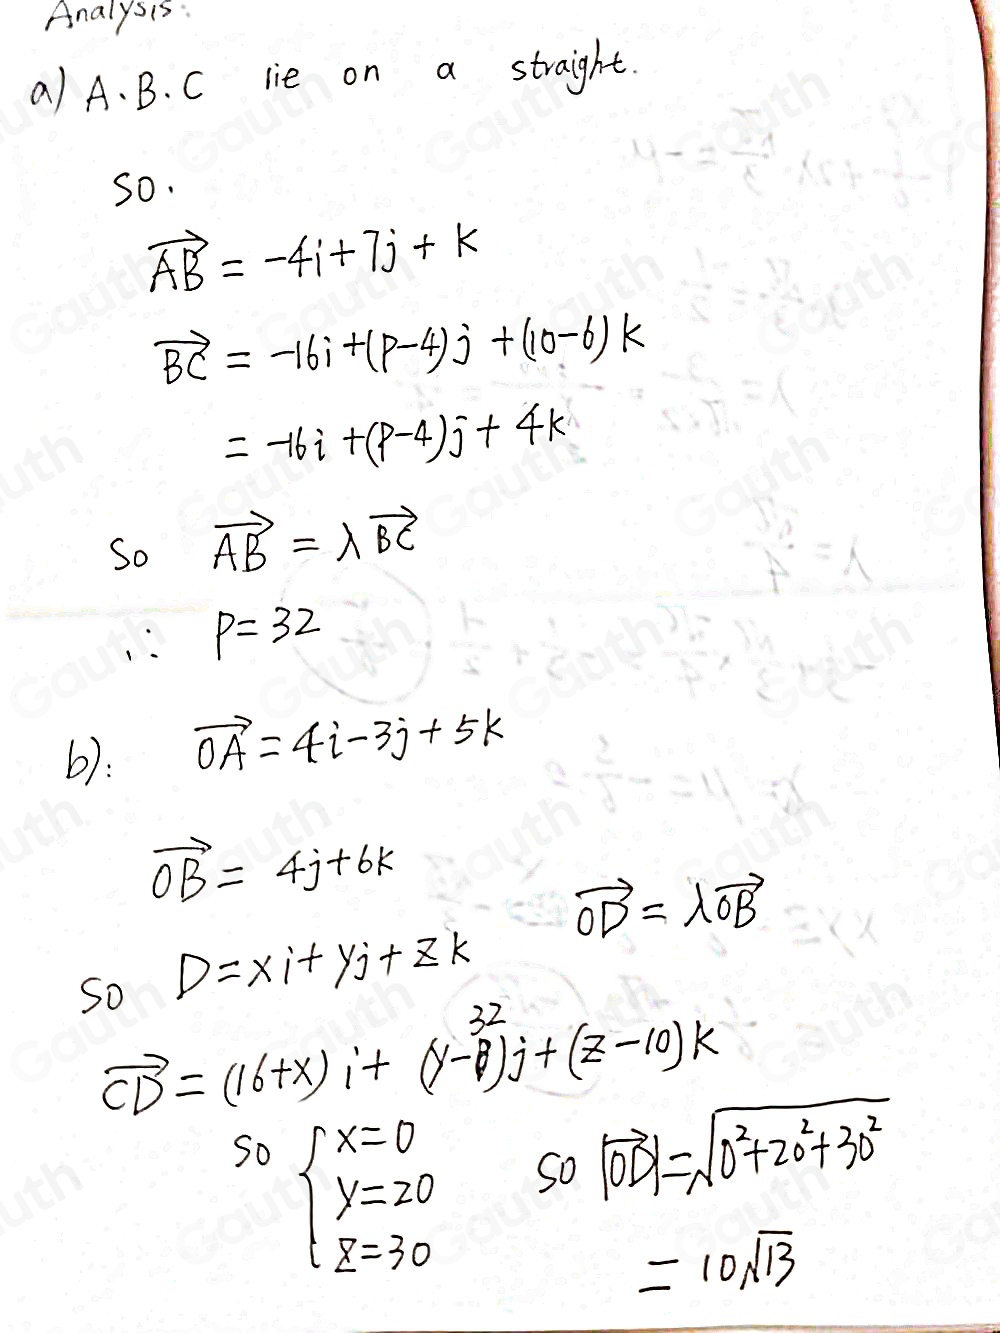 Analysis:
a) A.B.C lie on a straight.
so.
$\overrightarrow{AB} = -4i + 7j + k$
$\overrightarrow{BC} = -16i + (P-4)j + (10-6)k$
$= -16i + (P-4)j + 4k$
So $\overrightarrow{AB} = \lambda \overrightarrow{BC}$
∴ P = 32
b): $\overrightarrow{OA} = 4i - 3j + 5k$
$\overrightarrow{OB} = 4j + 6k$
$\overrightarrow{OD} = \lambda \overrightarrow{OB}$
So D = xi + yj + zk
$\overrightarrow{CD} = (16+x)i + (y-32)j + (z-10)k$
so { x = 0
y = 20
z = 30
so $|\overrightarrow{OD}| = \sqrt{0^2 + 20^2 + 30^2}$
$= 10\sqrt{13}$
Gauth